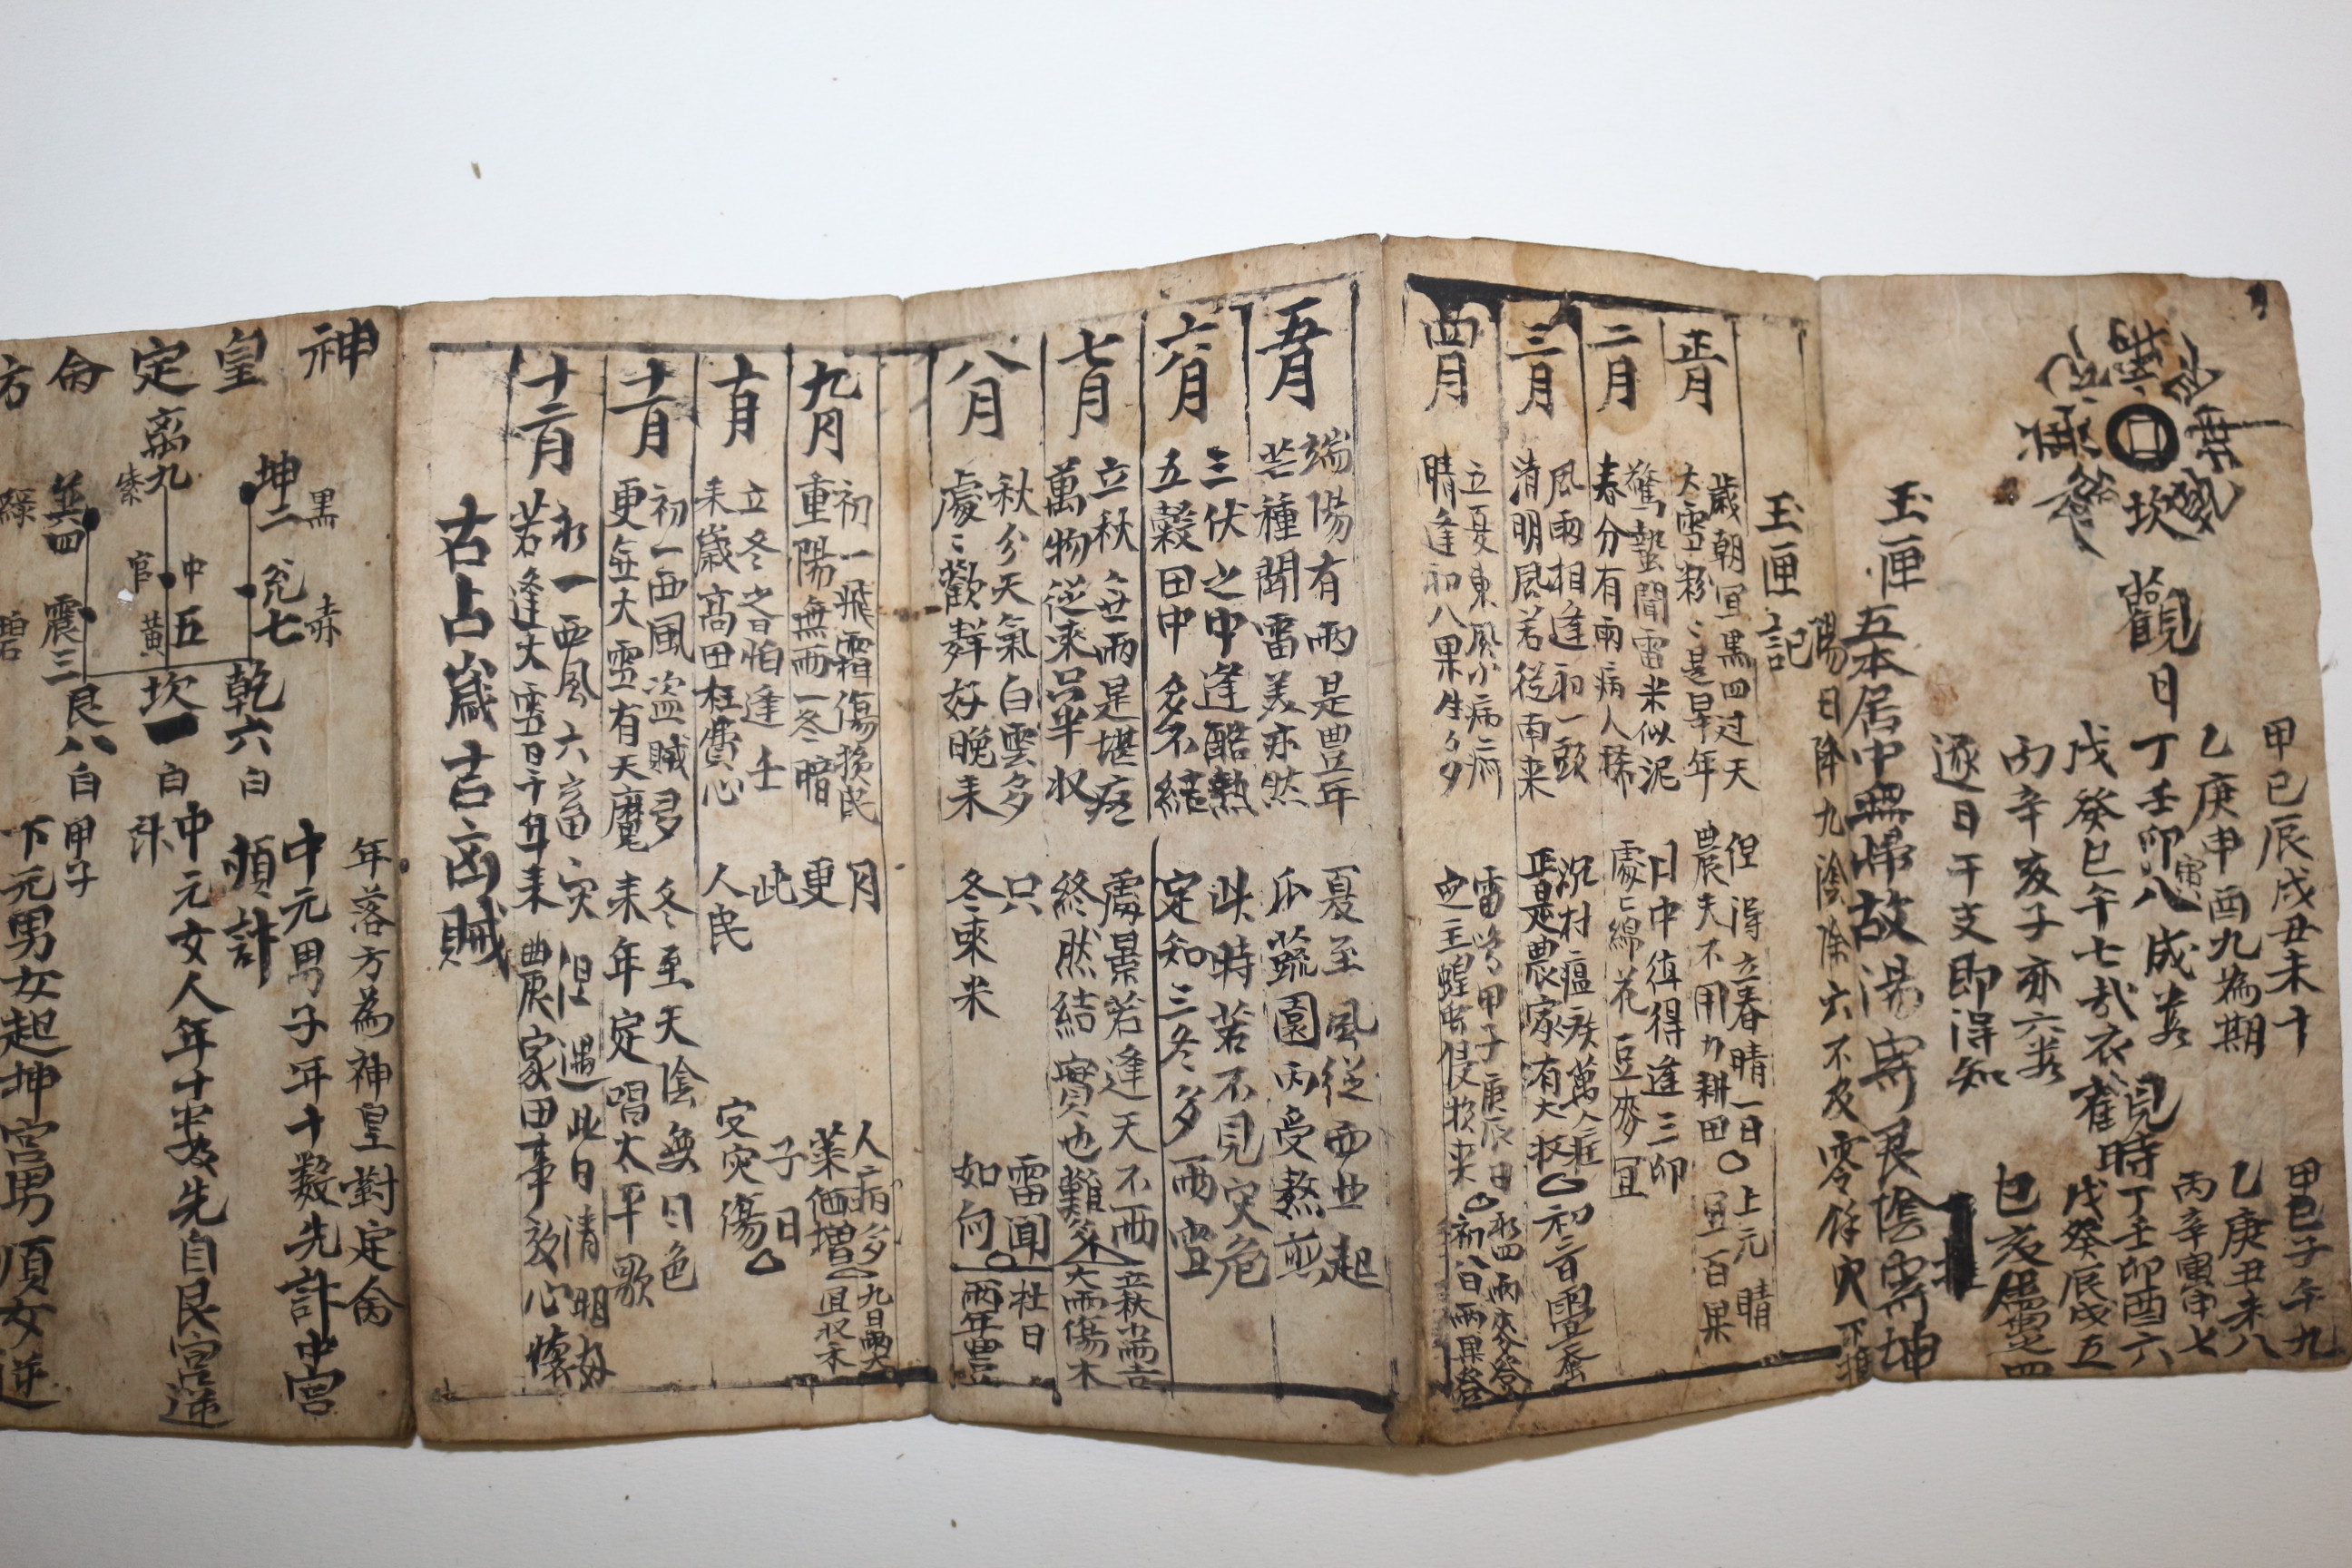 觀日
甲己辰戌丑未十
乙庚申酉九為期
丁壬寅卯八成若
戊癸巳午七
丙辛亥子亦六
逐日干支即得知
觀時
甲己子午九
乙庚丑未八
丙辛寅申七
丁壬卯酉六
戊癸辰戌五
巳亥屬之四
玉匣
五本居中無歸故陽寄艮陰寄坤
陽日除九陰除六不及零餘
玉匣記
正月
歲朝宜黑四过天
大雪紛〻是旱年
但得立春晴一日
農夫不用力耕田
上元晴
宜百果
二月
驚蟄聞雷米似泥
春分有雨病人稀
日中值得逢三卯
處〻綿花豆麥宜
三月
風雨相逢初一頭
沉村瘟疫萬人
清明風若從南来
正是農家有大收
初三
四月
立夏東風少病痾
晴逢初八果生多
雷鳴甲子庚辰日
定主蝗虫侵
初八日雨果
五月
端陽有雨是豊年
芒種聞雷美亦然
夏至風從西北起
瓜蔬園內受熬煎
六月
三伏之中逢酷熱
五穀田中多不結
此時若不見灾危
定知三冬多雨雪
七月
立秋無雨是堪
萬物從来只半収
處暑若逢天不雨
終然結實也難
立秋小雨吉
大雨傷木
八月
秋分天氣白雲多
處〻歡聲好晚禾
只 雷聞
冬來米 如何
社日
雨年豊
九月
初一飛霜傷損民
重陽無雨一冬晴
月 人病多
更 菜価增
九日雨
宜収禾
十月
立冬之日怕逢壬
来歲高田枉費心
此 子日
人民 受灾傷
十一月
初一西風盗賊多
更無大雪有天魔
冬至天陰無日色
来年定唱太平歌
十二月
初一西風六畜灾
若逢大雪旱年来
但遇此日清明好
農家田事放心懷
古占歲吉凶賊
神皇定命方
坤二 黑
兌七 赤
乾六 白
離九 紫
中五 黃
坎一 白
巽四 綠
震三 碧
艮八 白
年落方為神皇對定命
中元男子年十數先計中宮
順計
中元女人年十先自艮宮逆
計
甲子
下元男女起坤宮男順女逆